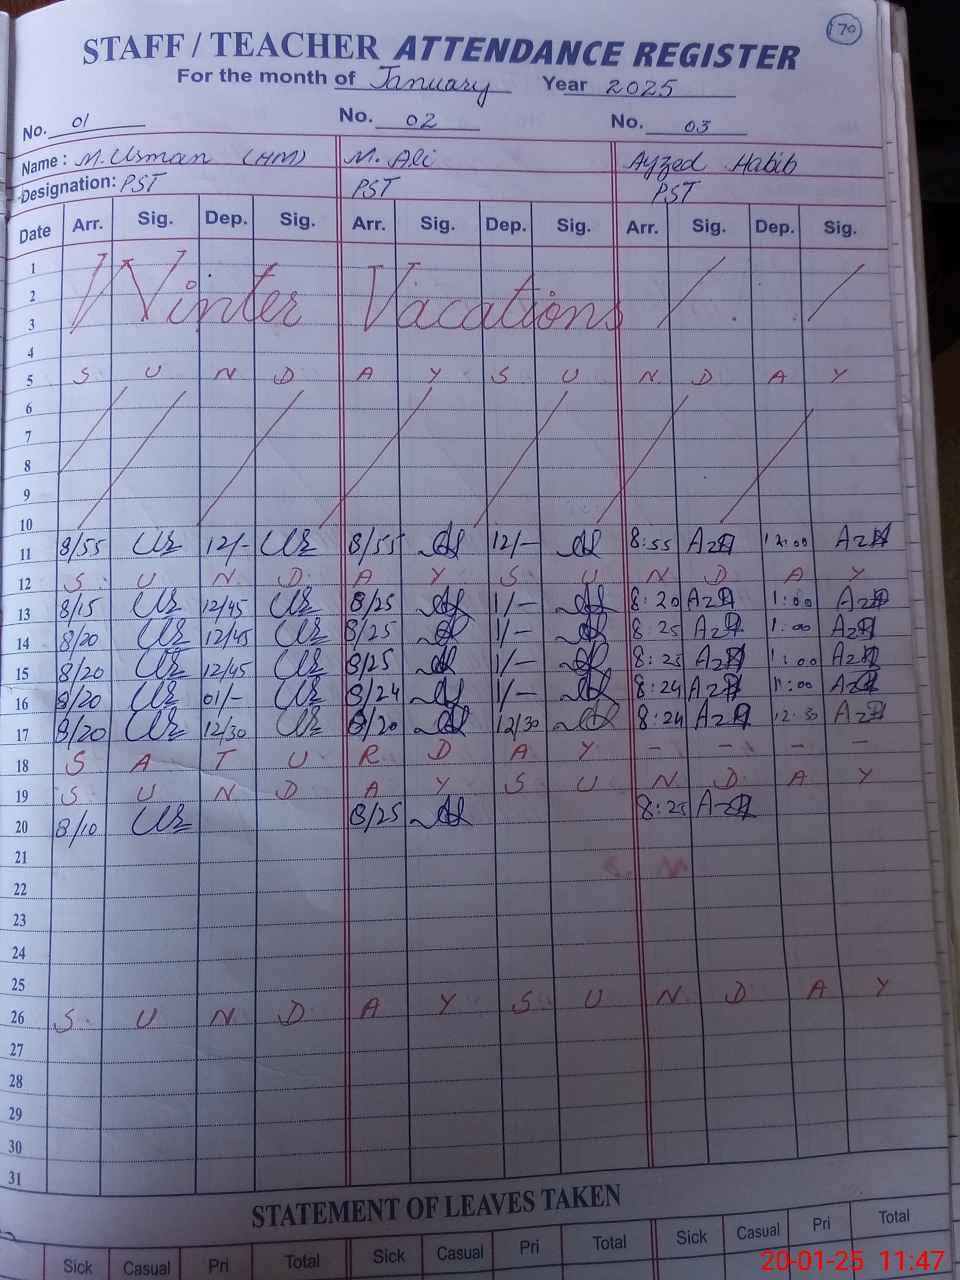 170
STAFF / TEACHER ATTENDANCE REGISTER
For the month of January Year 2025
No. 01 No. 02 No. 03
Name : M. Usman (HM) M. Ali Ayzed Habib
Designation: PST PST PST
Date Arr. Sig. Dep. Sig. Arr. Sig. Dep. Sig. Arr. Sig. Dep. Sig.
1
2 Winter Vacations
3
4
5 S U N D A Y S U N D A Y
6
7
8
9
10
11 8/55 12/- 8/55 12/- 8:55 12:00
12 S U N D A Y S U N D A Y
13 8/15 12/45 8/25 1/- 8:20 1:00
14 8/20 12/45 8/25 1/- 8:25 1:00
15 8/20 12/45 8/25 1/- 8:25 1:00
16 8/20 01/- 8/24 1/- 8:24 1:00
17 8/20 12/30 8/20 12/30 8:24 12:30
18 S A T U R D A Y - - - -
19 S U N D A Y S U N D A Y
20 8/10 8/25 8:25
21
22
23
24
25
26 S U N D A Y S U N D A Y
27
28
29
30
31
STATEMENT OF LEAVES TAKEN
Sick Casual Pri Total Sick Casual Pri Total Sick Casual Pri Total
20-01-25 11:47